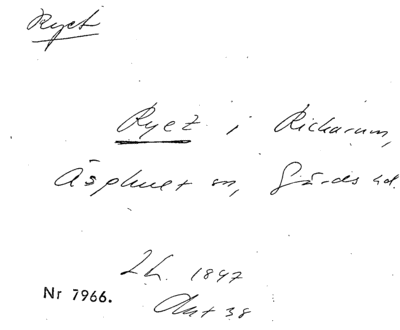 Ryet
Ryet i Rickarum,
Äsphult sn, Gärds hd.
Lh. 1897
Nr 7966.
Akt 38